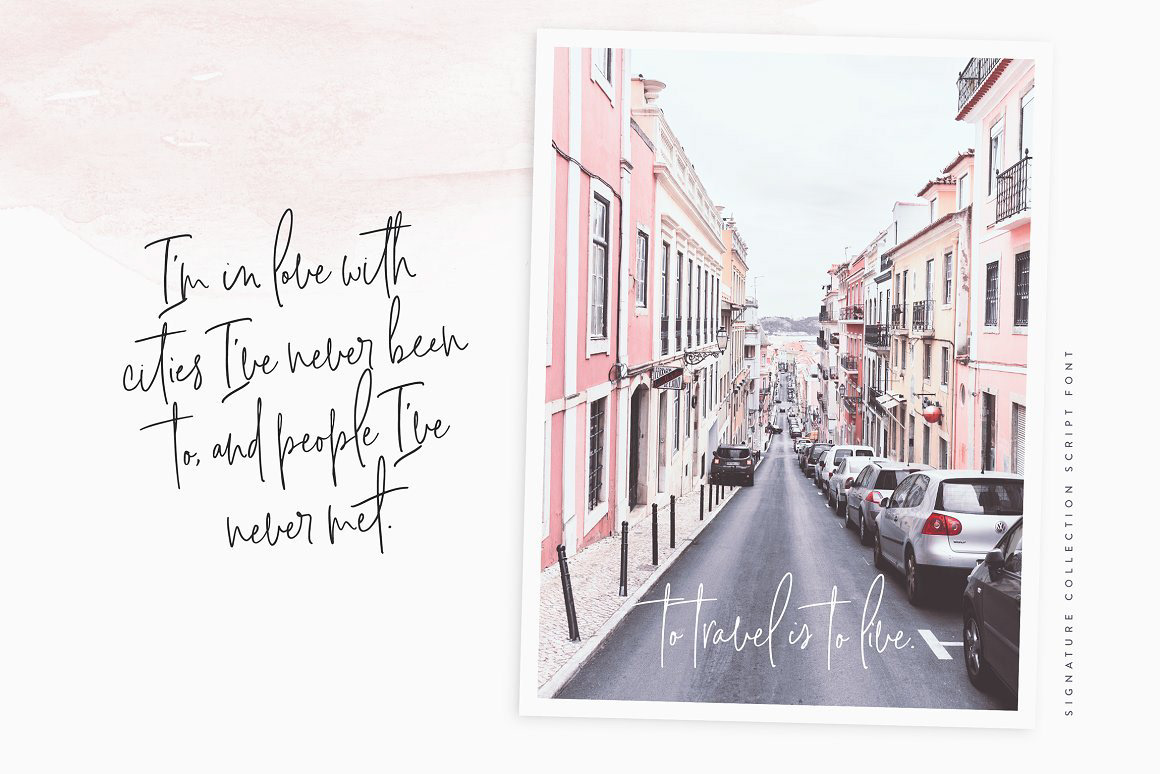 I'm in love with
cities I've never been
to, and people I've
never met.
to travel is to live.
SIGNATURE COLLECTION SCRIPT FONT